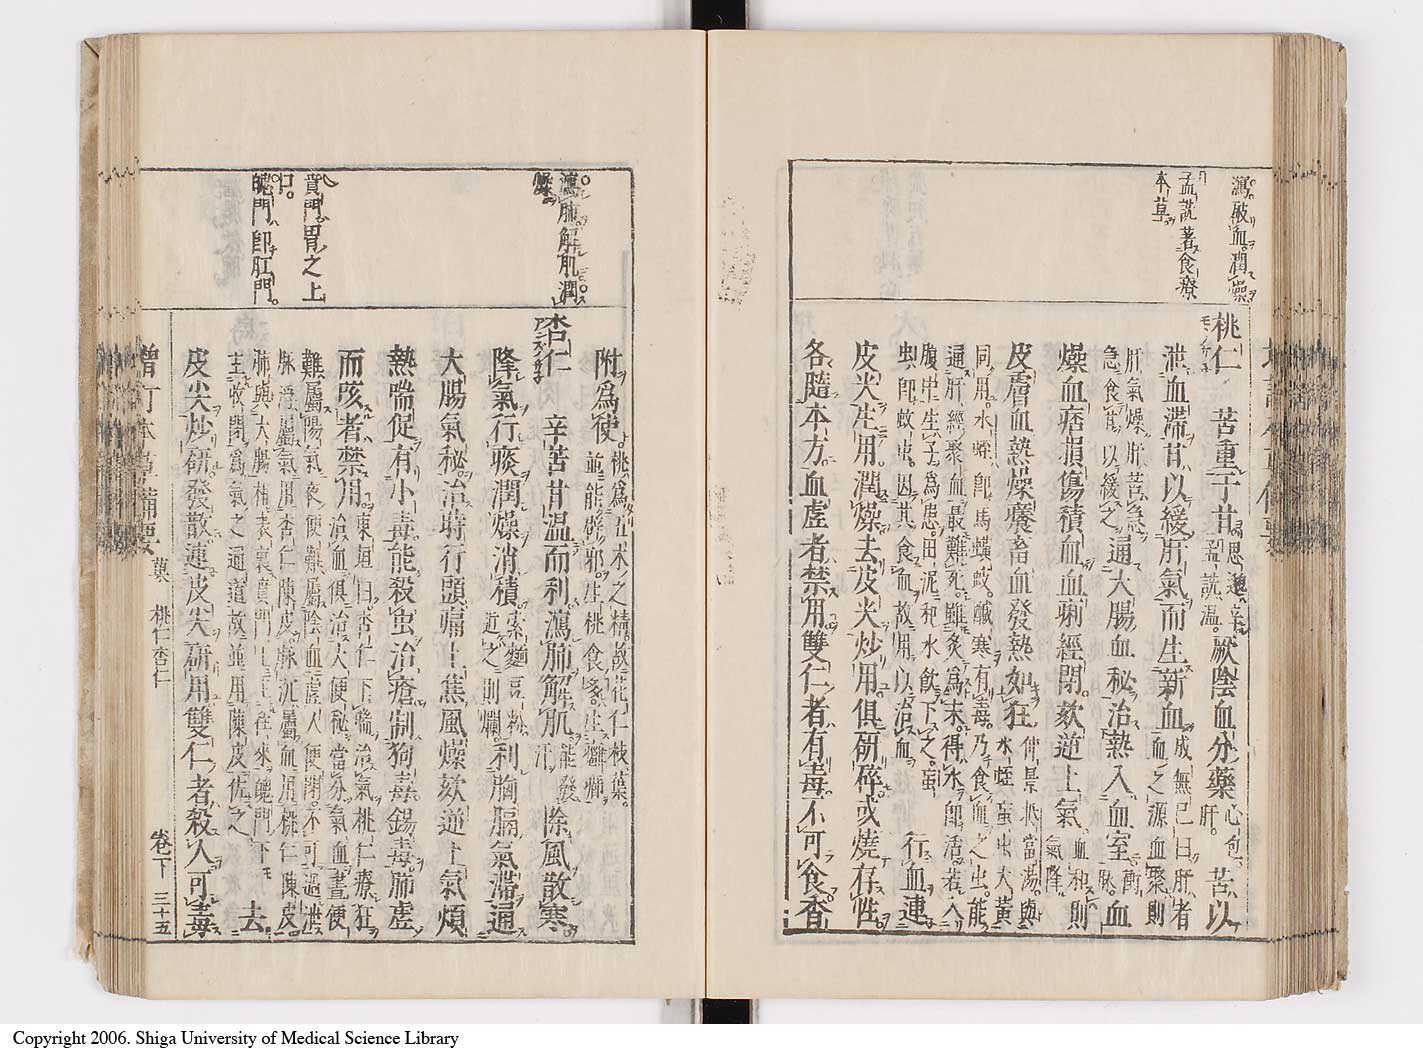 瀉破血潤燥
孟詵著食療
本草
桃仁 苦重于甘思邈辛孟詵溫厥陰血分藥心包肝苦以
泄血滯甘以緩肝氣而生新血成無己曰肝者血之源血聚則
肝氣燥肝苦急急食甘以緩之通大腸血秘治熱入血室衝脉血
燥血痞損傷積血血痢經閉欬逆上氣血和則氣降
皮膚血熱燥癢畜血發熱如狂仲景抵當湯與
同用水蛭即馬蟥蚑鹹寒有毒乃食血之虫能
通肝經聚血最難死雖灸爲末得水即活若入
腹中生子爲患田泥和水飲下之䖟
虫即蚊虫因其食血故用以治血 行血連
皮尖生用潤燥去皮尖炒用俱研碎或燒存性
各隨本方血虛者禁用雙仁者有毒不可食香
瀉肺解肌潤
燥
賁門胃之上
口
魄門即肛門
附爲使桃爲五木之精故花仁枝葉並能辟邪生桃食多生癰癤
杏仁 辛苦甘溫而利瀉肺解肌能發汗除風散寒
降氣行痰潤燥消積索麵豆粉近之則爛利胸膈氣滯通
大腸氣秘治時行頭痛上焦風燥欬逆上氣煩
熱喘促有小毒能殺虫治瘡制狗毒錫毒肺虛
而咳者禁用東垣曰杏仁下喘治氣桃仁療狂治血俱治大便秘當分氣血晝便
難屬陽氣夜便難屬陰血虛人便閉不可過泄
脉浮屬氣用杏仁陳皮脉沉屬血用桃仁陳皮
肺與大腸相表裏賁門上主往來魄門下
主收閉爲氣之通道故並用陳皮佐之 去
皮尖炒研發散連皮尖研用雙仁者殺人可毒
增訂本草備要 菓 桃仁杏仁 卷下 三十五